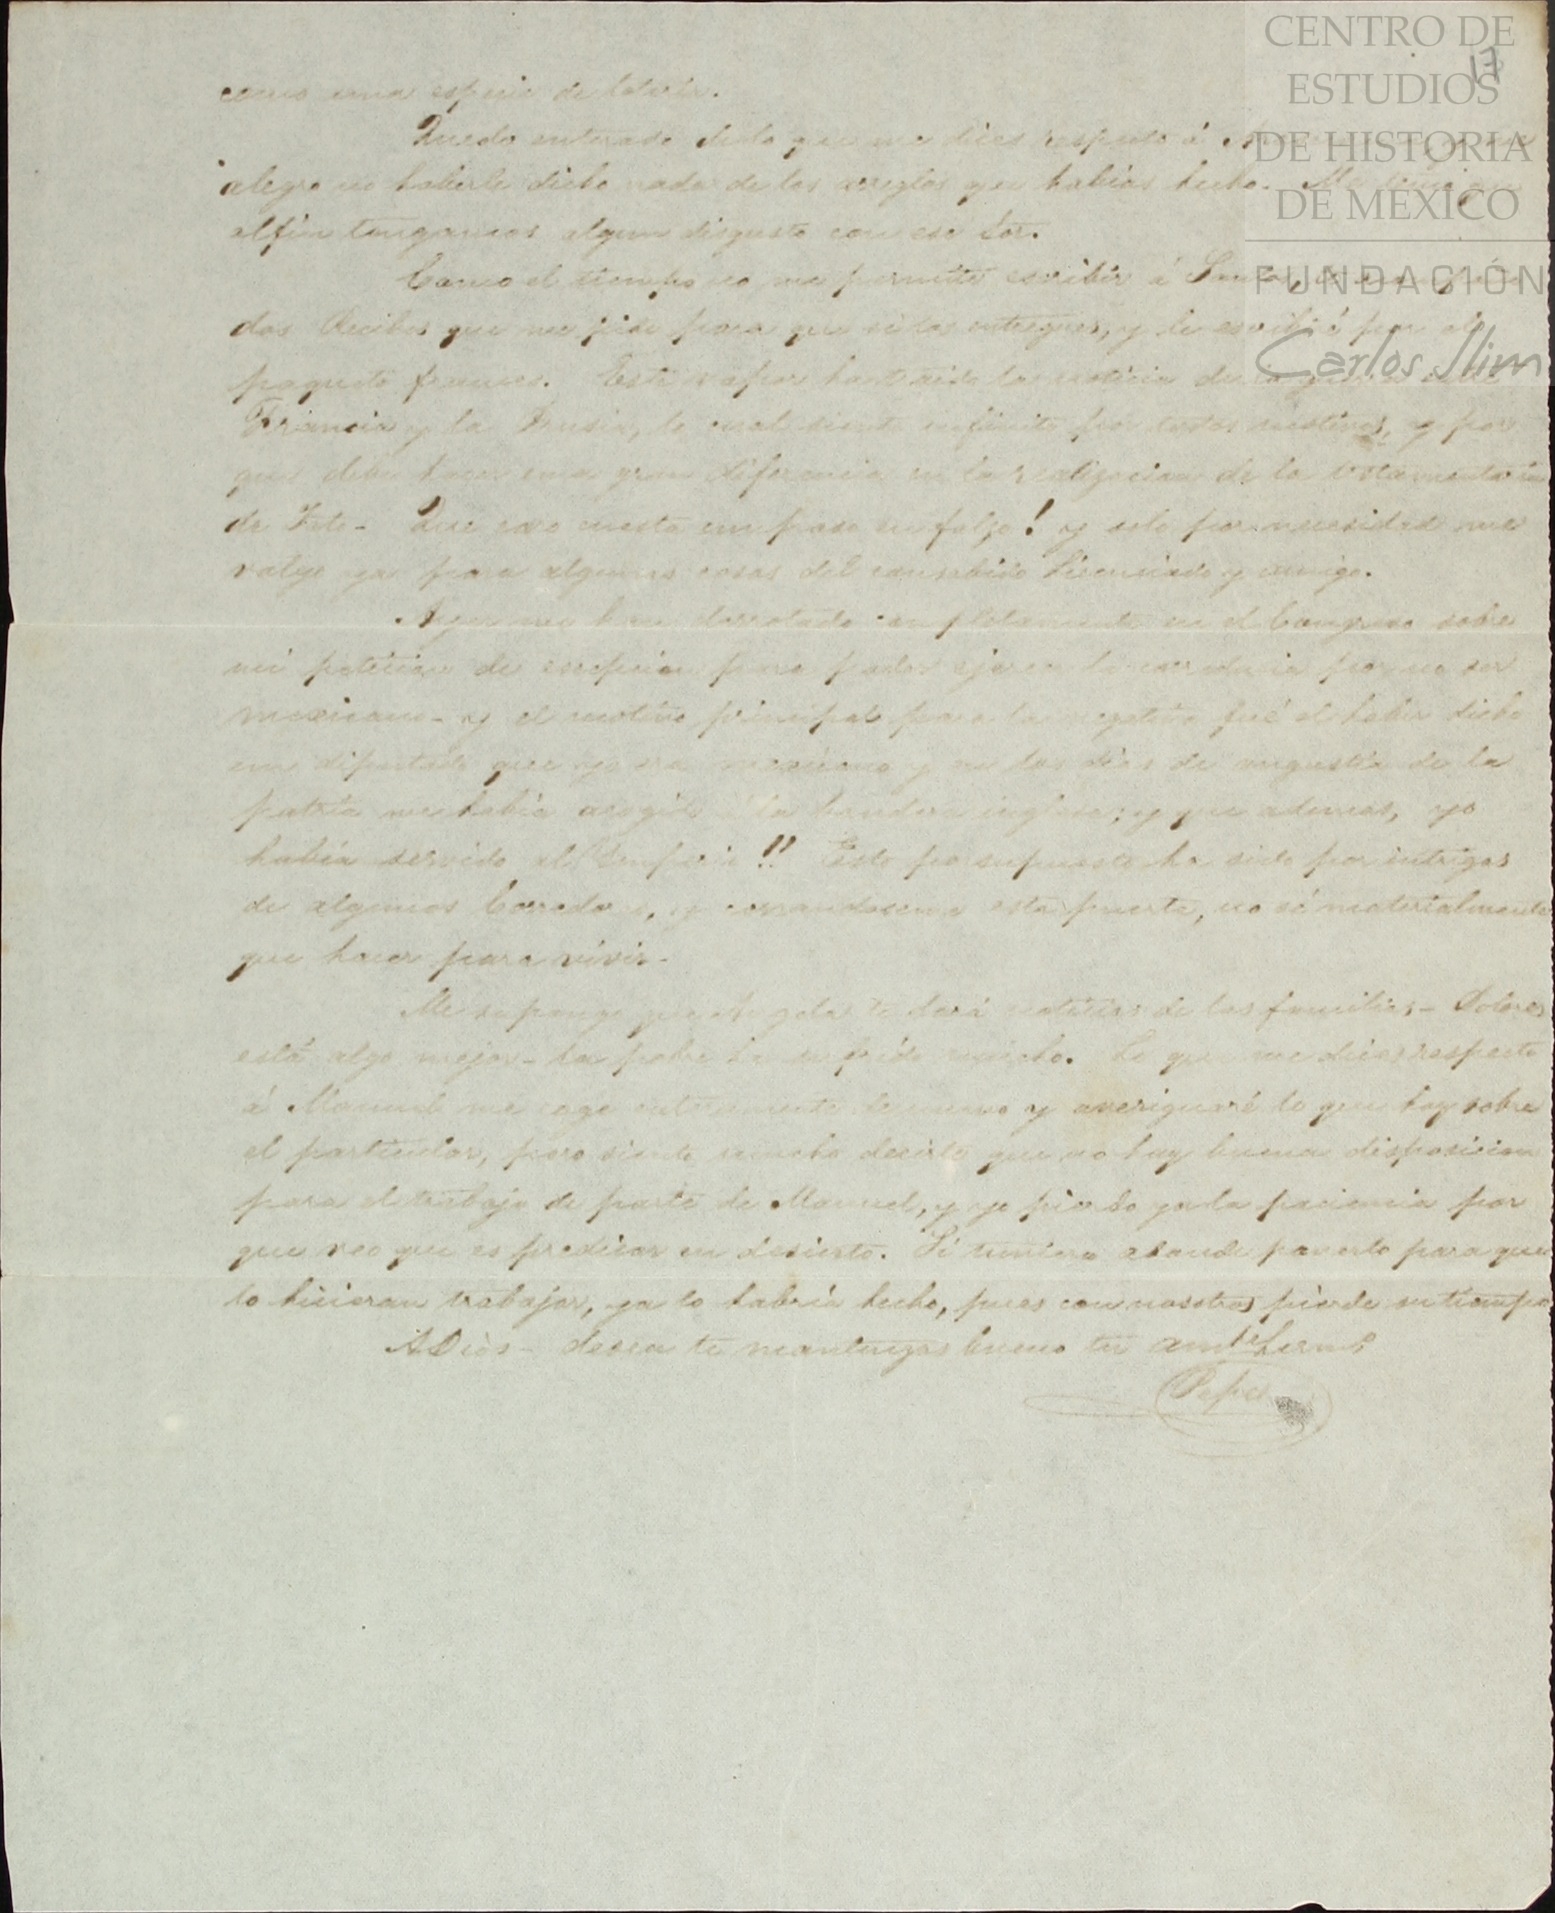 CENTRO DE
ESTUDIOS
DE HISTORIA
DE MÉXICO
FUNDACIÓN
Carlos Slim
17
como una especie de lotería.
Quedo enterado de lo que me dices respecto á
alegro no haberle dicho nada de los arreglos que habias hecho. Me
al fin tengamos algun disgusto con ese Sor.
Como el tiempo no me permite escribir á
dos Recibos que me pide para que se los entregues, y le escribiré por el
paquete frances. Este vapor ha traido la noticia de la guerra entre
Francia y la Prusia, lo cual siento infinito por todos motivos, y por
que debe hacer una gran diferencia en la realizacion de la
de Que caro cuesta un paso en falso! y solo por necesidad me
valgo ya para algunas cosas del consabido Licenciado y amigo.
Ayer me han derrotado completamente en el Congreso sobre
mi peticion de escepcion para poder ejercer la correduria por no ser
mexicano - y el motivo principal para la negativa fué el haber dicho
un diputado que yo era mexicano y en los dias de angustia de la
patria me habia acogido á la bandera inglesa; y que ademas, yo
habia servido al Imperio!! Esto por supuesto ha sido por intrigas
de algunos Corredores, y cerrandoseme esta puerta, no sé materialmente
que hacer para vivir.
Me supongo que Angela te dará noticias de las familias - Dolores
está algo mejor - la pobre ha sufrido mucho. Lo que me dices respecto
á Manuel me coge enteramente de nuevo y averiguaré lo que hay sobre
el particular, pero siento mucho decirte que no hay buena disposicion
para el trabajo de parte de Manuel, y yo pierdo ya la paciencia por
que veo que es predicar en desierto. Si tuviera adonde ponerlo para que
lo hicieran trabajar, ya lo habria hecho, pues con nosotros pierde su tiempo
A Dios - desea te mantengas bueno tu amte hermo
Pepe